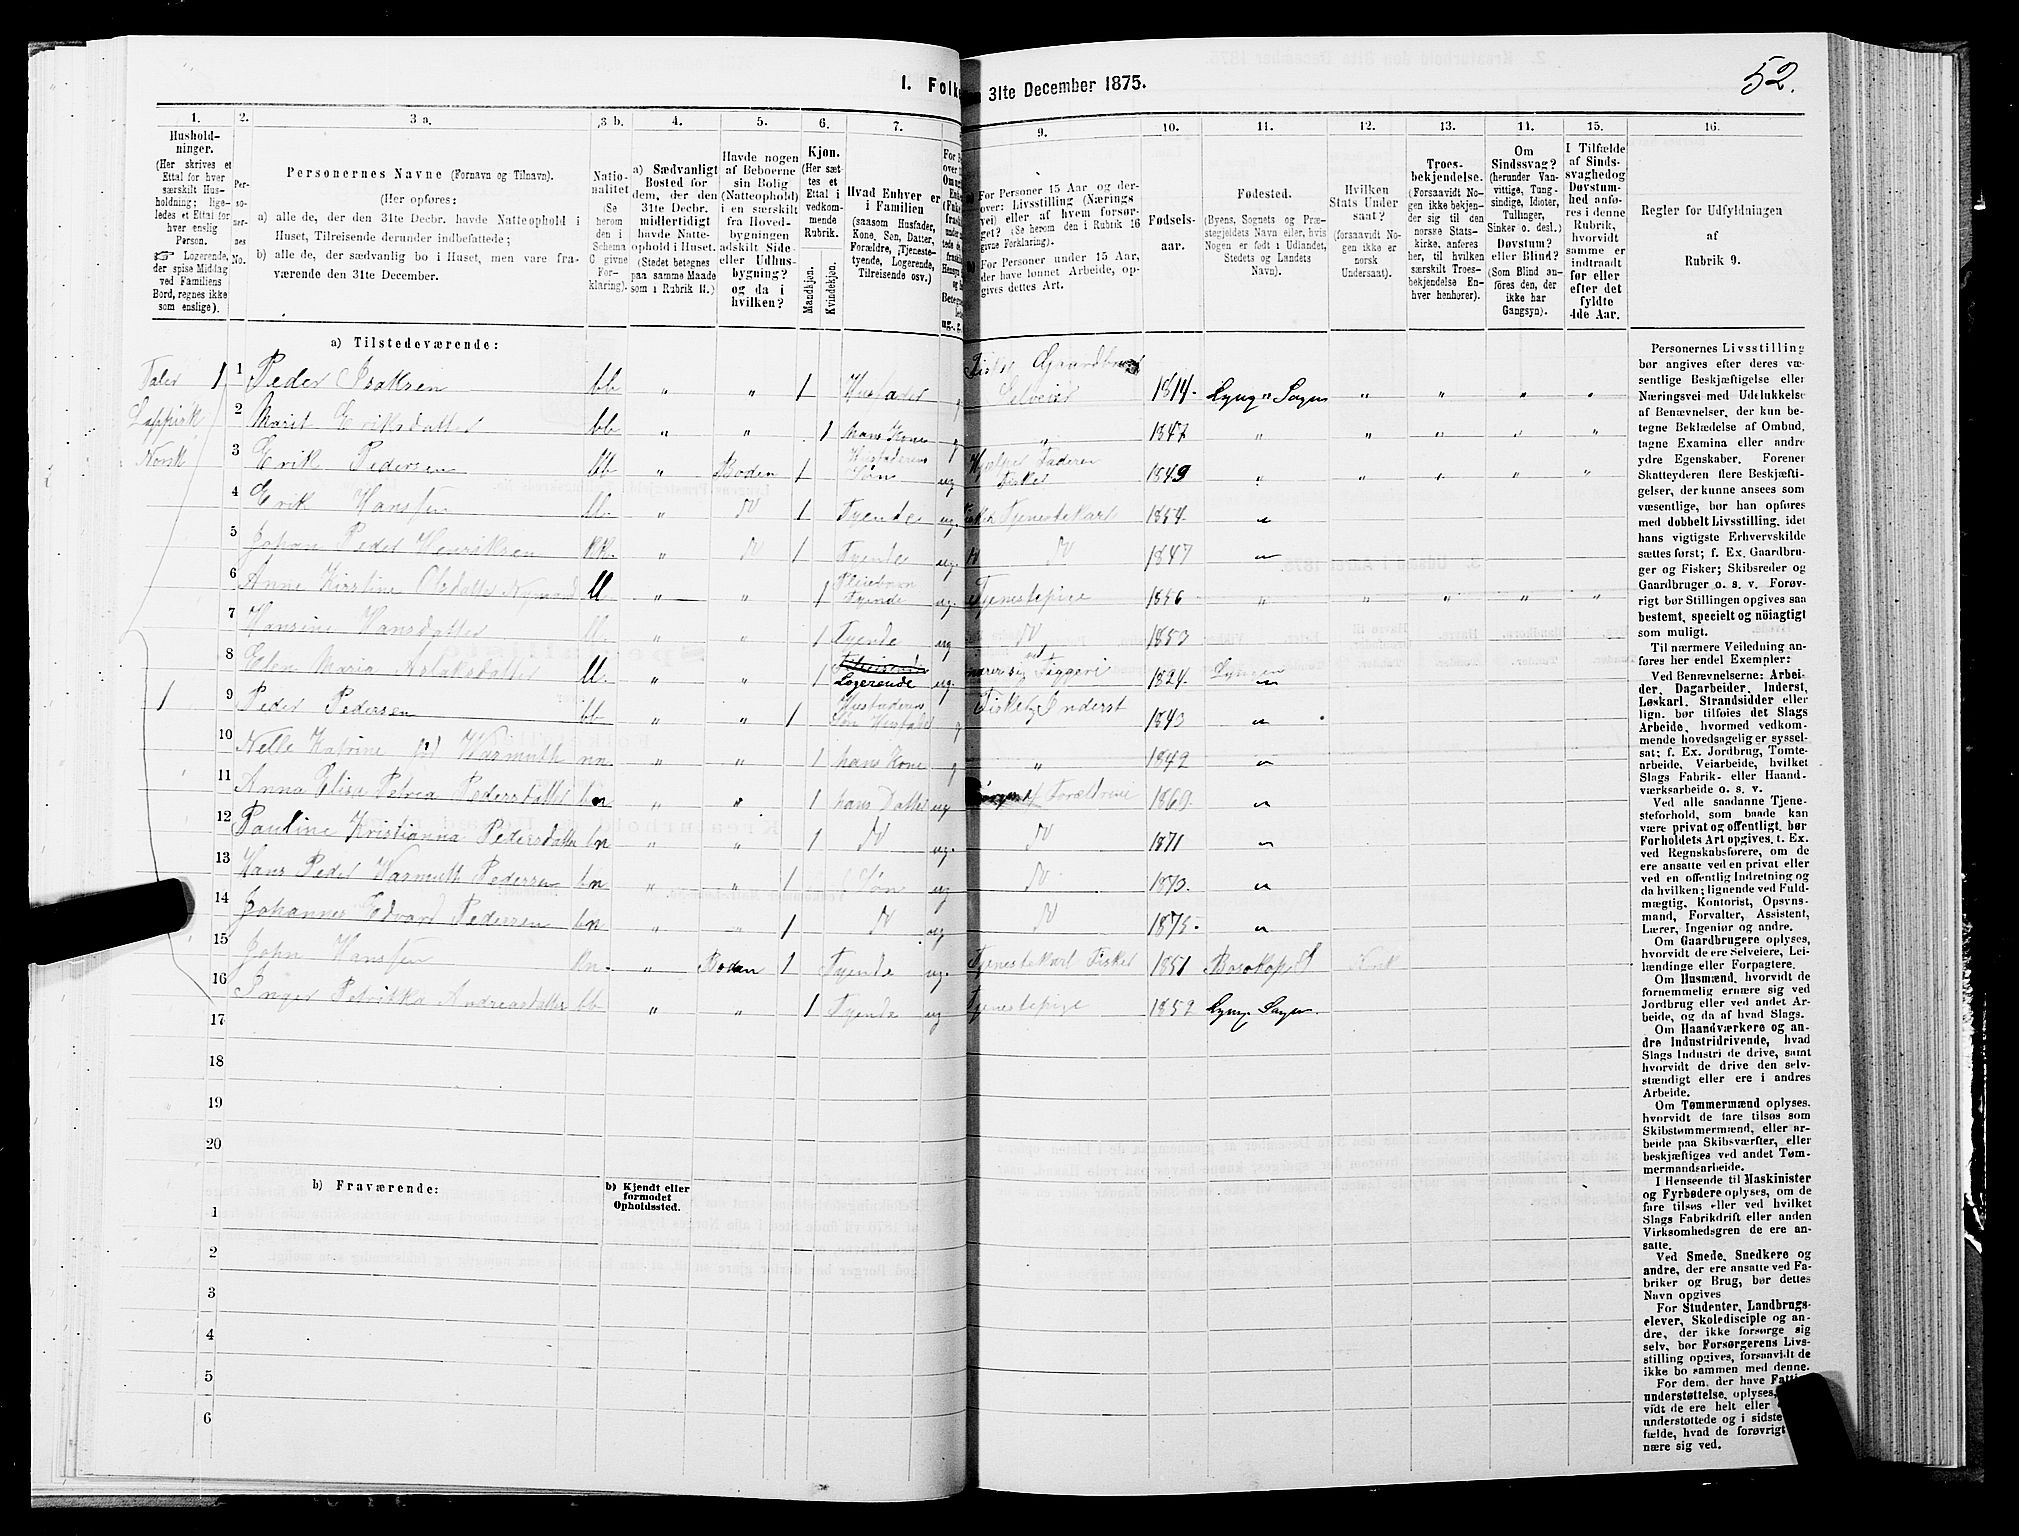 52.
1. Folke 31te December 1875.
1. 2. 3 a. 3 b. 4. 5. 6. 7. 9. 10. 11. 12. 13. 14. 15. 16.
Hushold-
ninger.
(Her skrives et
Ettal for hver
særskilt Hus-
holdning; lige-
ledes et Ettal for
hver enslig
Person.
☞ Logerende,
der spise Middag
ved Familiens
Bord, regnes ikke
som enslige).
Per-
so-
ner-
nes
No.
Personernes Navne (Fornavn og Tilnavn).
(Her opføres:
a) alle de, der den 31te Decbr. havde Natteophold i
Huset, Tilreisende derunder indbefattede;
b) alle de, der sædvanlig bo i Huset, men vare fra-
værende den 31te December.
Natio-
nalitet
(Se
herom
den i
Schema
C givne
For-
klaring).
a) Sædvanligt
Bosted for
dem, der den
31te Decbr.
midlertidigt
havde Natte-
ophold i Huset.
(Stedet betegnes
paa samme Maade
som i Rubrik 11.)
Havde nogen
af Beboerne
sin Bolig
(Natteophold)
i en særskilt
fra Hoved-
bygningen
adskilt Side-
eller Udhus-
bygning?
og da i
hvilken?
Kjøn.
(Her sæt-
tes et
Ettal i
vedkom-
mende
Rubrik.
Mandkjøn.
Kvindekjøn.
Hvad Enhver er
i Familien
(saasom Husfader,
Kone, Søn, Datter,
Forældre, Tjeneste-
tyende, Logerende,
Tilreisende osv.)
For Personer 15 Aar og der-
over: Livsstilling (Nærings
vei) eller af hvem forsør-
get? (Se herom den i Rubrik 16
givne Forklaring).
For Personer under 15 Aar,
der have lønnet Arbeide, op-
gives dettes Art.
Fødsels-
aar.
Fødested.
(Byens, Sognets og Præ-
stegjeldets Navn eller, hvis
Nogen er født i Udlandet,
Stedets og Landets
Navn).
Hvilken
Stats Under
saat?
(forsaavidt No-
gen ikke er
norsk
Undersaat).
Troes-
bekjendelse.
(Forsaavidt No-
gen ikke bekjen-
der sig til den
norske Stats-
kirke, anføres
her, til hvilken
særskilt Troes-
bekjendelse En-
hver henhører).
Om
Sindssvag?
(herunder Van-
vittige, Tung-
sindige, Idioter,
Tullinger,
Sinker o. desl.)
Døvstum?
eller Blind?
(Som Blind an-
føres den, der
ikke har
Gangsyn).
I Tilfælde
af Sinds-
svaghed og
Døvstum-
hed anfø-
res i denne
Rubrik,
hvorvidt
samme er
indtraadt
før eller
efter det
fyldte
4de Aar.
Regler for Udfyldningen
af
Rubrik 9.
a) Tilstedeværende:
Taler 1 1 Peder Isaksen bb " " 1 Husfader g Fisker Gaardbruger Selveier 1814. Lyng. Sogn " " " "
Lappisk 2 Marit Eriksdatter bb " " 1 hans Kone g " 1847 " " " " "
Norsk 3 Erik Pedersen bb " Boden 1 Husfaderens Søn ug Hjælper Faderen Fisker 1849 " " " " "
4 Erik Hansen ll. " 1 Tyende ug. Tjenestekarl 1854. "
5 Johan Peder Henriksen " 1 Tyende ug. 1847 "
6 Anne Kirstine Olsdatter ll " " 1 Pleiebarn Tyende ug. Tjenestepige 1856 " " " " "
7 Hansine Hansdatter ll. " " 1 Tyende ug 1853 "
8 Elen Maria Aslaksdatter ll. " " 1 Logerende ug. nærer sig ved Tiggeri 1824. Lyngen
1 9 Peder Pedersen bb " " 1 Husfaderens Søn Husfader g Fisker Inderst 1843 "
10 Nelle Katrine Warmuth nn " " 1 hans Kone g " 1842 "
11 Anna Elisa Petrea Pedersdatter bn " " 1 hans Datter ug Forældrene 1869. "
12 Pauline Kristianna Pedersdatter bn " " 1 ug. 1871 "
13 Hans Peder Warmuth Pedersen bn " " 1 Søn ug 1873. "
14 Johannes Edvard Pedersen bn " " 1 ug 1875. "
15 John Hansen kn. " Boden 1 Tyende ug. Tjenestekarl Fisker 1851 Bosokop
16 Inger Petrikka Andreasdatter bb " " 1 Tyende ug Tjenestepige 1852 Lyng. Sogn.
17
18
19
20
b) Fraværende:
b) Kjendt eller
formodet
Opholdssted.
1
2
3
4
5
6
Personernes Livsstilling
bør angives efter deres væ-
sentlige Beskjæftigelse eller
Næringsvei med Udelukkelse
af Benævnelser, der kun be-
tegne Beklædelse af Ombud,
tagne Examina eller andre
ydre Egenskaber. Forener
Skatteyderen flere Beskjæfti-
gelser, der kunne ansees som
væsentlige, bør han opføres
med dobbelt Livsstilling, idet
hans vigtigste Erhvervskilde
sættes først; f. Ex. Gaardbru-
ger og Fisker; Skibsreder og
Gaardbruger o. s. v. Forøv-
rigt bør Stillingen opgives saa
bestemt, specielt og nöiagtigt
som muligt.
Til nærmere Veiledning an-
føres her endel Exempler:
Ved Benævnelserne: Arbei-
der, Dagarbeider, Inderst,
Løskarl, Strandsidder eller
lign. bør tilføies det Slags
Arbeide, hvormed vedkom-
mende hovedsagelig er syssel-
sat; f. Ex. Jordbrug, Tomte-
arbeide, Veiarbeide, hvilket
Slags Fabrik- eller Haand-
værksarbeide o. s. v.
Ved alle saadanne Tjene-
steforhold, som baade kan
være privat og offentligt, bør
Forholdets Art opgives, t. Ex.
ved Regnskabsførere, om de
ere ansatte ved en privat eller
ved en offentlig Indretning og
da hvilken; lignende ved Fuld-
mægtig, Kontorist, Opsyns-
mand, Forvalter, Assistent,
Lærer, Ingeniør og andre.
Om Gaardbrugere oplyses,
hvorvidt de ere Selveiere, Lei-
lændinge eller Forpagtere.
Om Husmænd, hvorvidt de
fornemmelig ernære sig ved
Jordbrug eller ved andet Ar-
beide, og da af hvad Slags.
Om Haandværkere og an-
dre Industridrivende, hvad
Slags Industri de drive, samt
hvorvidt de drive den selv-
stændigt eller ere i andres
Arbeide.
Om Tømmermænd oplyses,
hvorvidt de fare tilsøs som
Skibstømmermænd, eller ar-
beide paa Skibsværfter, eller
beskjæftiges ved andet Tøm-
mermandsarbeide.
I Henseende til Maskinister
og Fyrbødere oplyses, om de
fare tilsøs eller ved hvilket
Slags Fabrikdrift eller anden
Virksomhedsgren de ere an-
satte.
Ved Smede, Snedkere og
andre, der ere ansatte ved Fa-
briker og Brug, bør dettes
Navn opgives
For Studenter, Landbrugs-
elever, Skoledisciple og an-
dre, der ikke forsørge sig
selv, bør Forsørgerens Livs-
stilling opgives, forsaavidt de
ikke bo sammen med denne.
For dem, der have
understøttelse, oplyses,
vidt de ere helt eller
understøttede og i sidste
fælde, hvad de forøvrigt
nære sig ved.